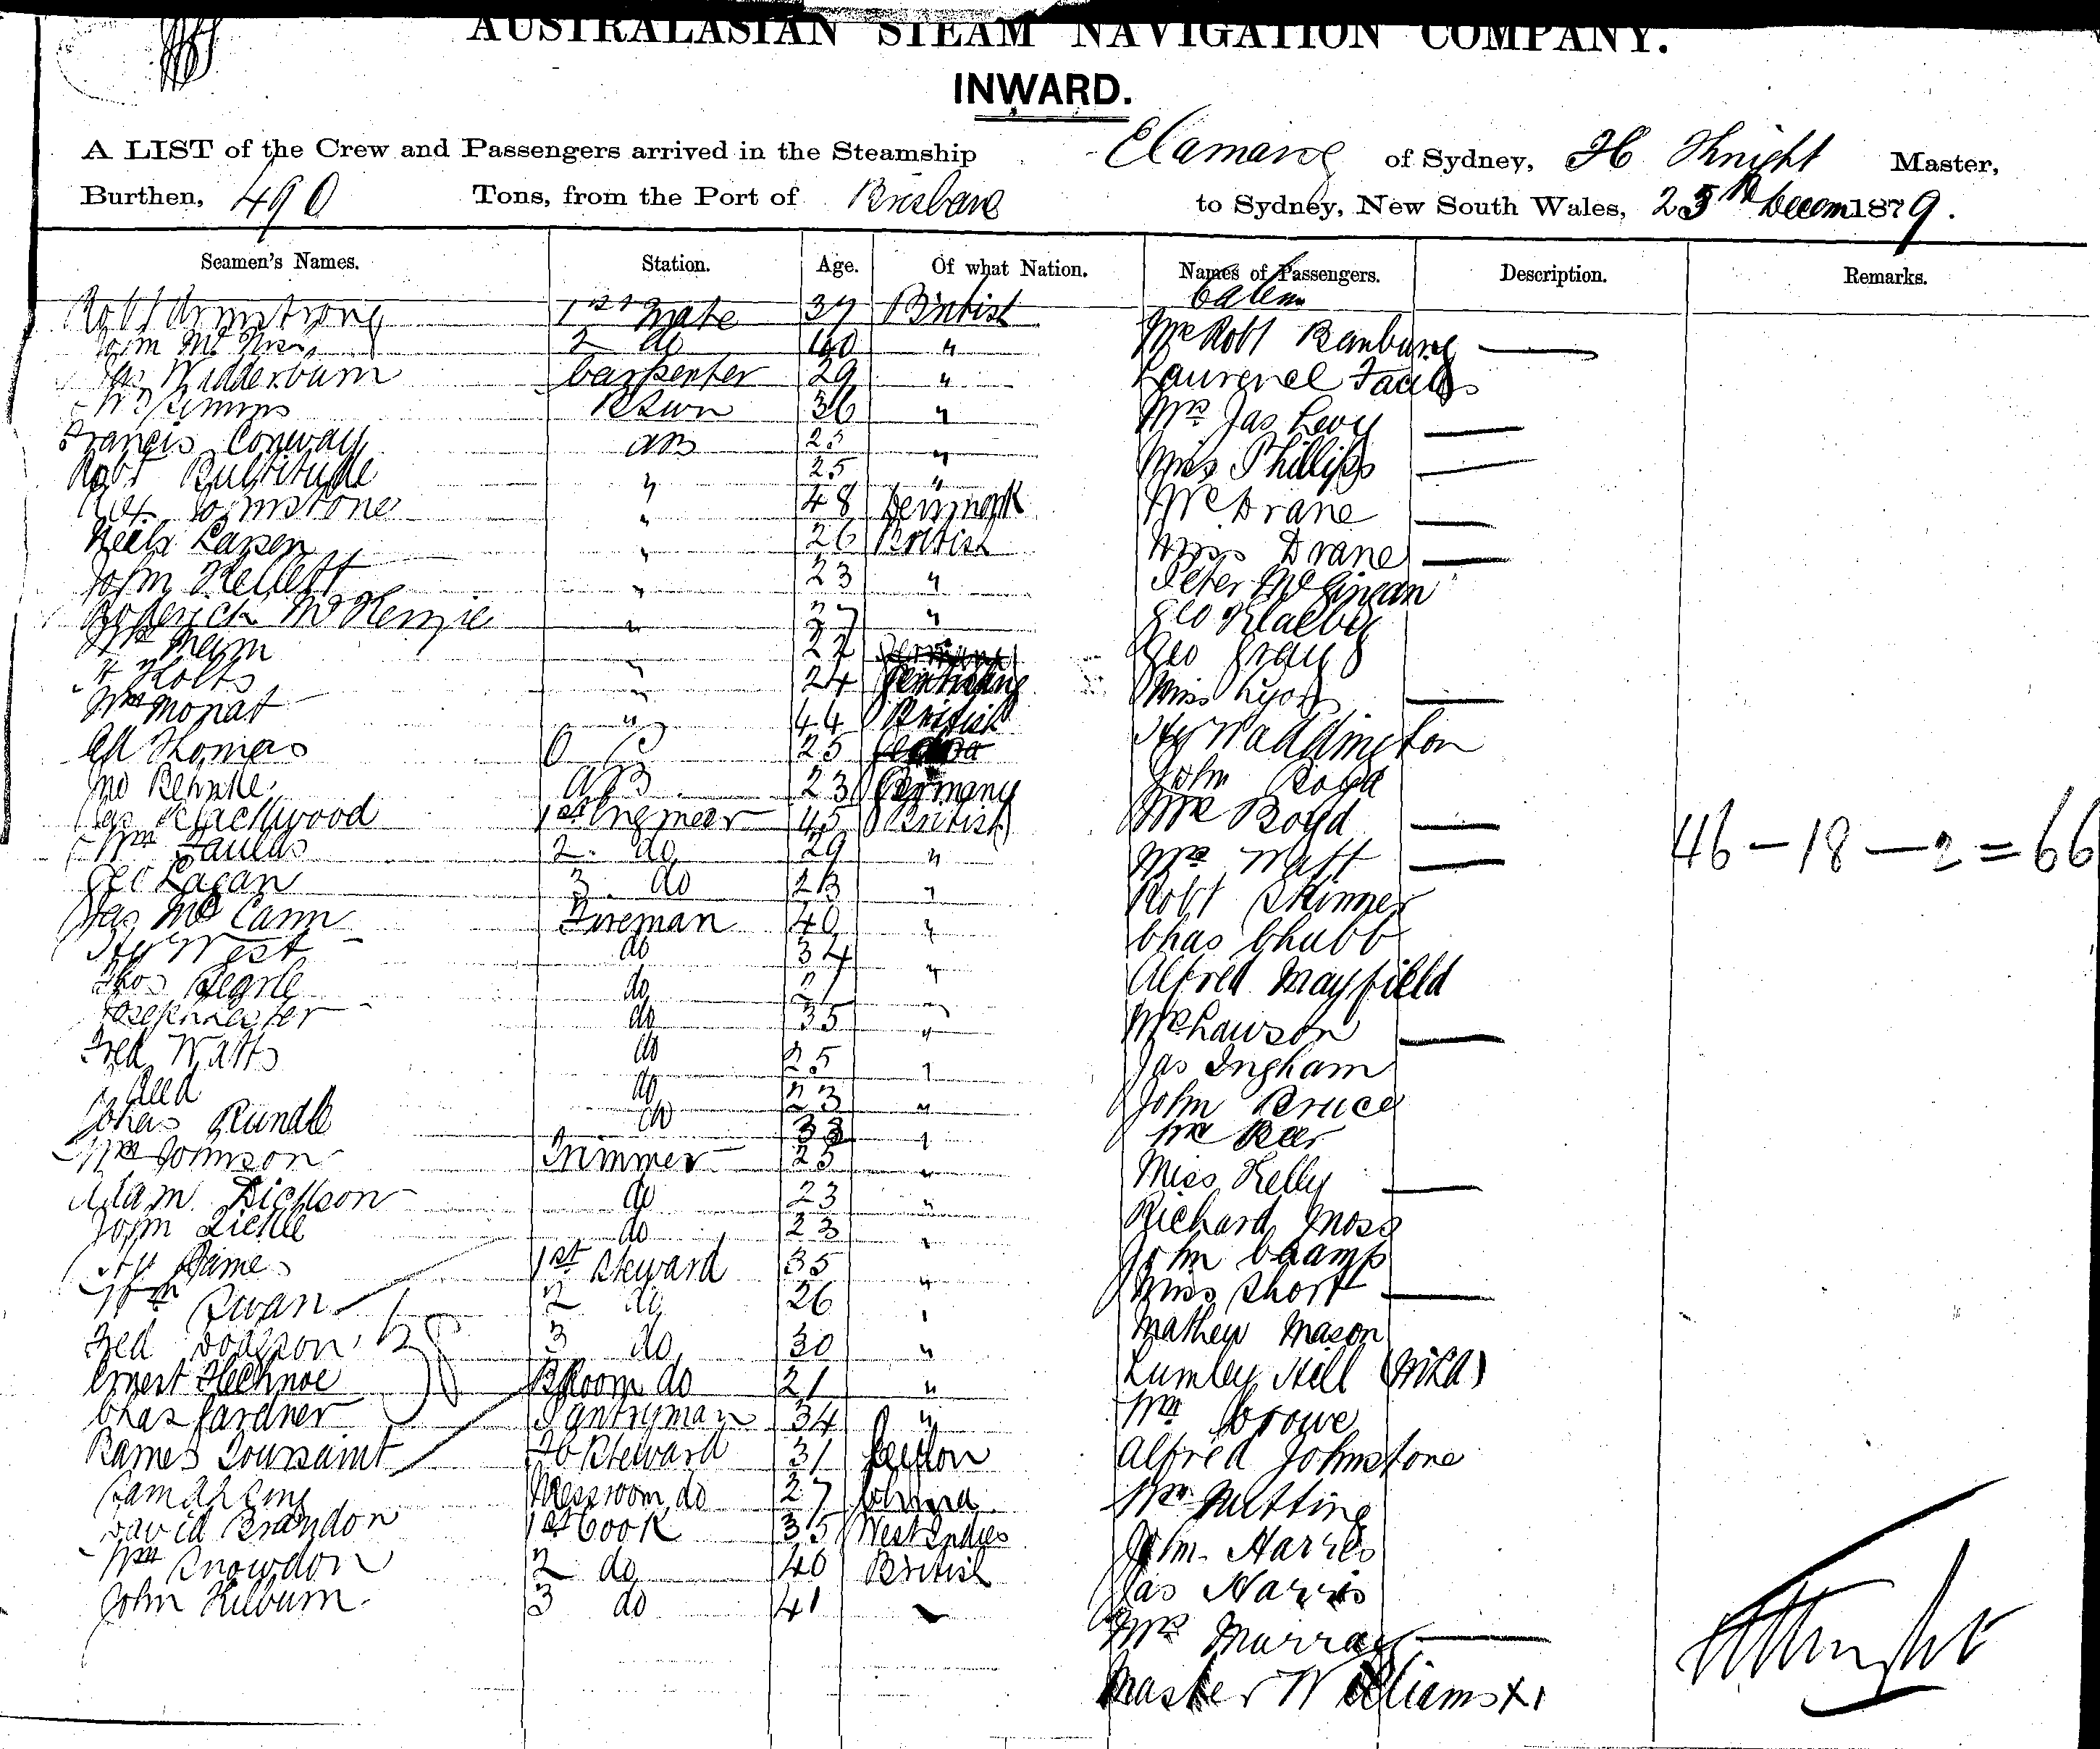 AUSTRALASIAN STEAM NAVIGATION COMPANY.
INWARD.
A LIST of the Crew and Passengers arrived in the Steamship Elamang of Sydney, H Knight Master,
Burthen, 490 Tons, from the Port of Brisbane to Sydney, New South Wales, 25th Decem 1879.
Seamen's Names. Station. Age. Of what Nation. Names of Passengers. Description. Remarks.
Saloon
Robt Armstrong 1st Mate 37 British Mr Robt Banbury
2 do 40 " Laurence
Jas Wadderburn Carpenter 29 " Mrs Jas Levy
36 " Miss Phillips
Francis Conway AB 23 " Drane
Robt Bultitude " 25 " Miss Drane
Johnstone " 48 Denmark Peter
Neils Larsen " 26 British Geo
John Kellett " 23 " Geo Gray
Roderick McKenzie " 27 " Miss Lyons
Wm " 22 Hy Waddington
H Holts " 24 John Boyd
Wm Mopat " 44 British Mrs Boyd
Thomas O S 25 Mrs Watt
Jno Behnke AB 23 Germany Robt Skinner
Jas Blackwood 1st Engineer 45 British Chas Chubb
Wm Faulds 2 do 29 " Alfred Mayfield
Geo Lagan 3 do 23 " Lawson
Jas McCann Fireman 40 " Jas Ingham
Hy West do 34 " John Bruce
Thos Searle do 27 " Beer
Joseph Lester do 35 " Miss Kelly
Fred Watts do 25 " Richard Moss
Reed do 23 " John Champ
Chas Rundle do 33 " Miss Short
Wm Johnson Trimmer 25 " Mathew Mason
Adam Dickson do 23 " Lumley Hill
John Lickle do 23 " Wm Crowe
Hy James 1st Steward 35 " Alfred Johnstone
Wm Swan 2 do 26 " Wm Nutting
Fred Dodgson 3 do 30 " John Harris
Ernest B Room do 21 " Jas Harris
Chas Gardner Pantryman 34 " Mrs Murray
James Toussaint Steward 31 Ceylon Master Williams x1
Messroom do 27 China
David Brandon 1st Cook 35 West Indies
Wm Snowdon 2 do 40 British
John Kilburn 3 do 41 "
38
46 - 18 - 2 = 66
H Knight